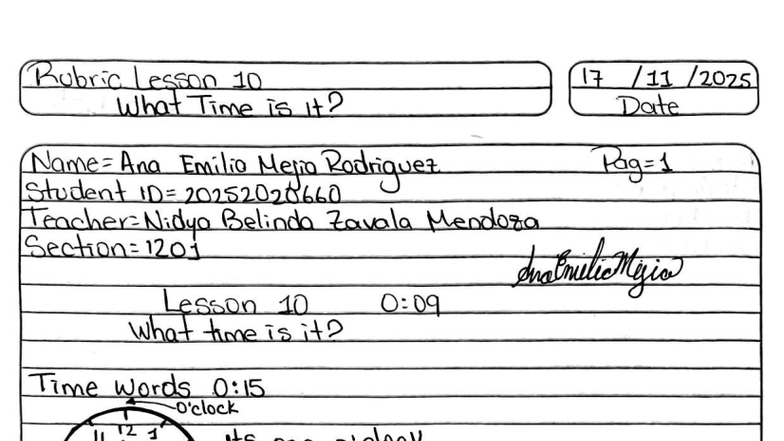 Rubric Lesson 10
What Time is it?
17 /11 /2025
Date
Name= Ana Emilia Mejia Rodriguez
Pag=1
Student ID= 20252020660
Teacher= Nidya Belinda Zavala Mendoza
Section= 1201
Ana Emilia Mejia
Lesson 10 0:09
What time is it?
Time words 0:15
O'clock
11 12 1